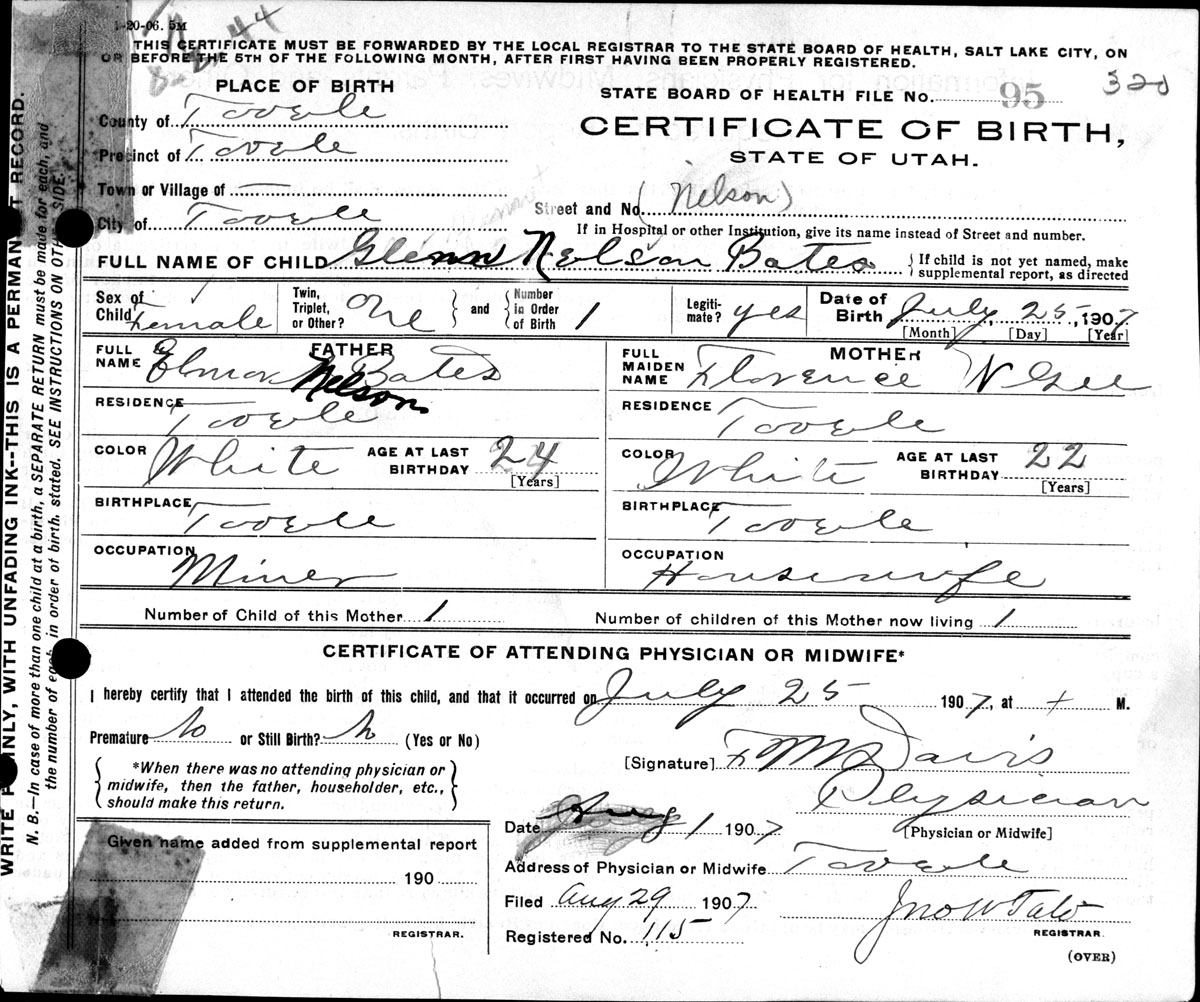 1-20-06. 5M
8-12-44
THIS CERTIFICATE MUST BE FORWARDED BY THE LOCAL REGISTRAR TO THE STATE BOARD OF HEALTH, SALT LAKE CITY, ON
OR BEFORE THE 5TH OF THE FOLLOWING MONTH, AFTER FIRST HAVING BEEN PROPERLY REGISTERED.
PLACE OF BIRTH
STATE BOARD OF HEALTH FILE No. 95 320
County of Tooele
CERTIFICATE OF BIRTH,
Precinct of Tooele
STATE OF UTAH.
Town or Village of —
City of Tooele
Street and No. (Nelson)
If in Hospital or other Institution, give its name instead of Street and number.
FULL NAME OF CHILD Glenn Nelson Bates { If child is not yet named, make
supplemental report, as directed
Sex of Child Female Twin, Triplet, or Other? One } and { Number in Order of Birth 1 Legiti-mate? yes Date of Birth July 25, 1907
[Month] [Day] [Year]
FATHER
FULL NAME Elmer Nelson Bates
RESIDENCE Tooele
COLOR White AGE AT LAST BIRTHDAY 24
[Years]
BIRTHPLACE Tooele
OCCUPATION Miner
MOTHER
FULL MAIDEN NAME Florence N Gee
RESIDENCE Tooele
COLOR White AGE AT LAST BIRTHDAY 22
[Years]
BIRTHPLACE Tooele
OCCUPATION Housewife
Number of Child of this Mother 1 Number of children of this Mother now living 1
CERTIFICATE OF ATTENDING PHYSICIAN OR MIDWIFE*
I hereby certify that I attended the birth of this child, and that it occurred on July 25 1907, at + M.
Premature No or Still Birth? No (Yes or No)
{ *When there was no attending physician or
midwife, then the father, householder, etc.,
should make this return. }
[Signature] F M Davis
Physician
[Physician or Midwife]
Date Aug 1 1907
Address of Physician or Midwife Tooele
Filed Aug 29 1907 Jno W Tate
REGISTRAR.
Registered No. 115
(OVER)
Given name added from supplemental report
190
REGISTRAR.
WRITE PLAINLY, WITH UNFADING INK--THIS IS A PERMANENT RECORD.
N. B.—In case of more than one child at a birth, a SEPARATE RETURN must be made for each, and
the number of each, in order of birth, stated. SEE INSTRUCTIONS ON OTHER SIDE.